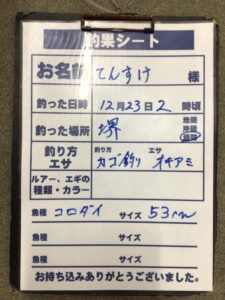 釣果シート
お名前 てんすけ 様
釣った日時 12月23日 2 時頃
釣った場所 堺 地磯 沖磯 堤防
釣り方 エサ 釣り方 カゴ釣り エサ オキアミ
ルアー、エギの種類・カラー
魚種 コロダイ サイズ 53cm
魚種 サイズ
魚種 サイズ
お持ち込みありがとうございました。